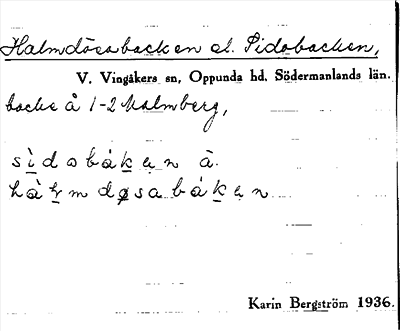 Halmdösabacken el. Sidobacken,
V. Vingåkers sn, Oppunda hd, Södermanlands län.
backe å 1-2 Malmberg,
sìdobák̠ẹn å.
hàl̠mdøsabák̠ẹn
Karin Bergström 1936.